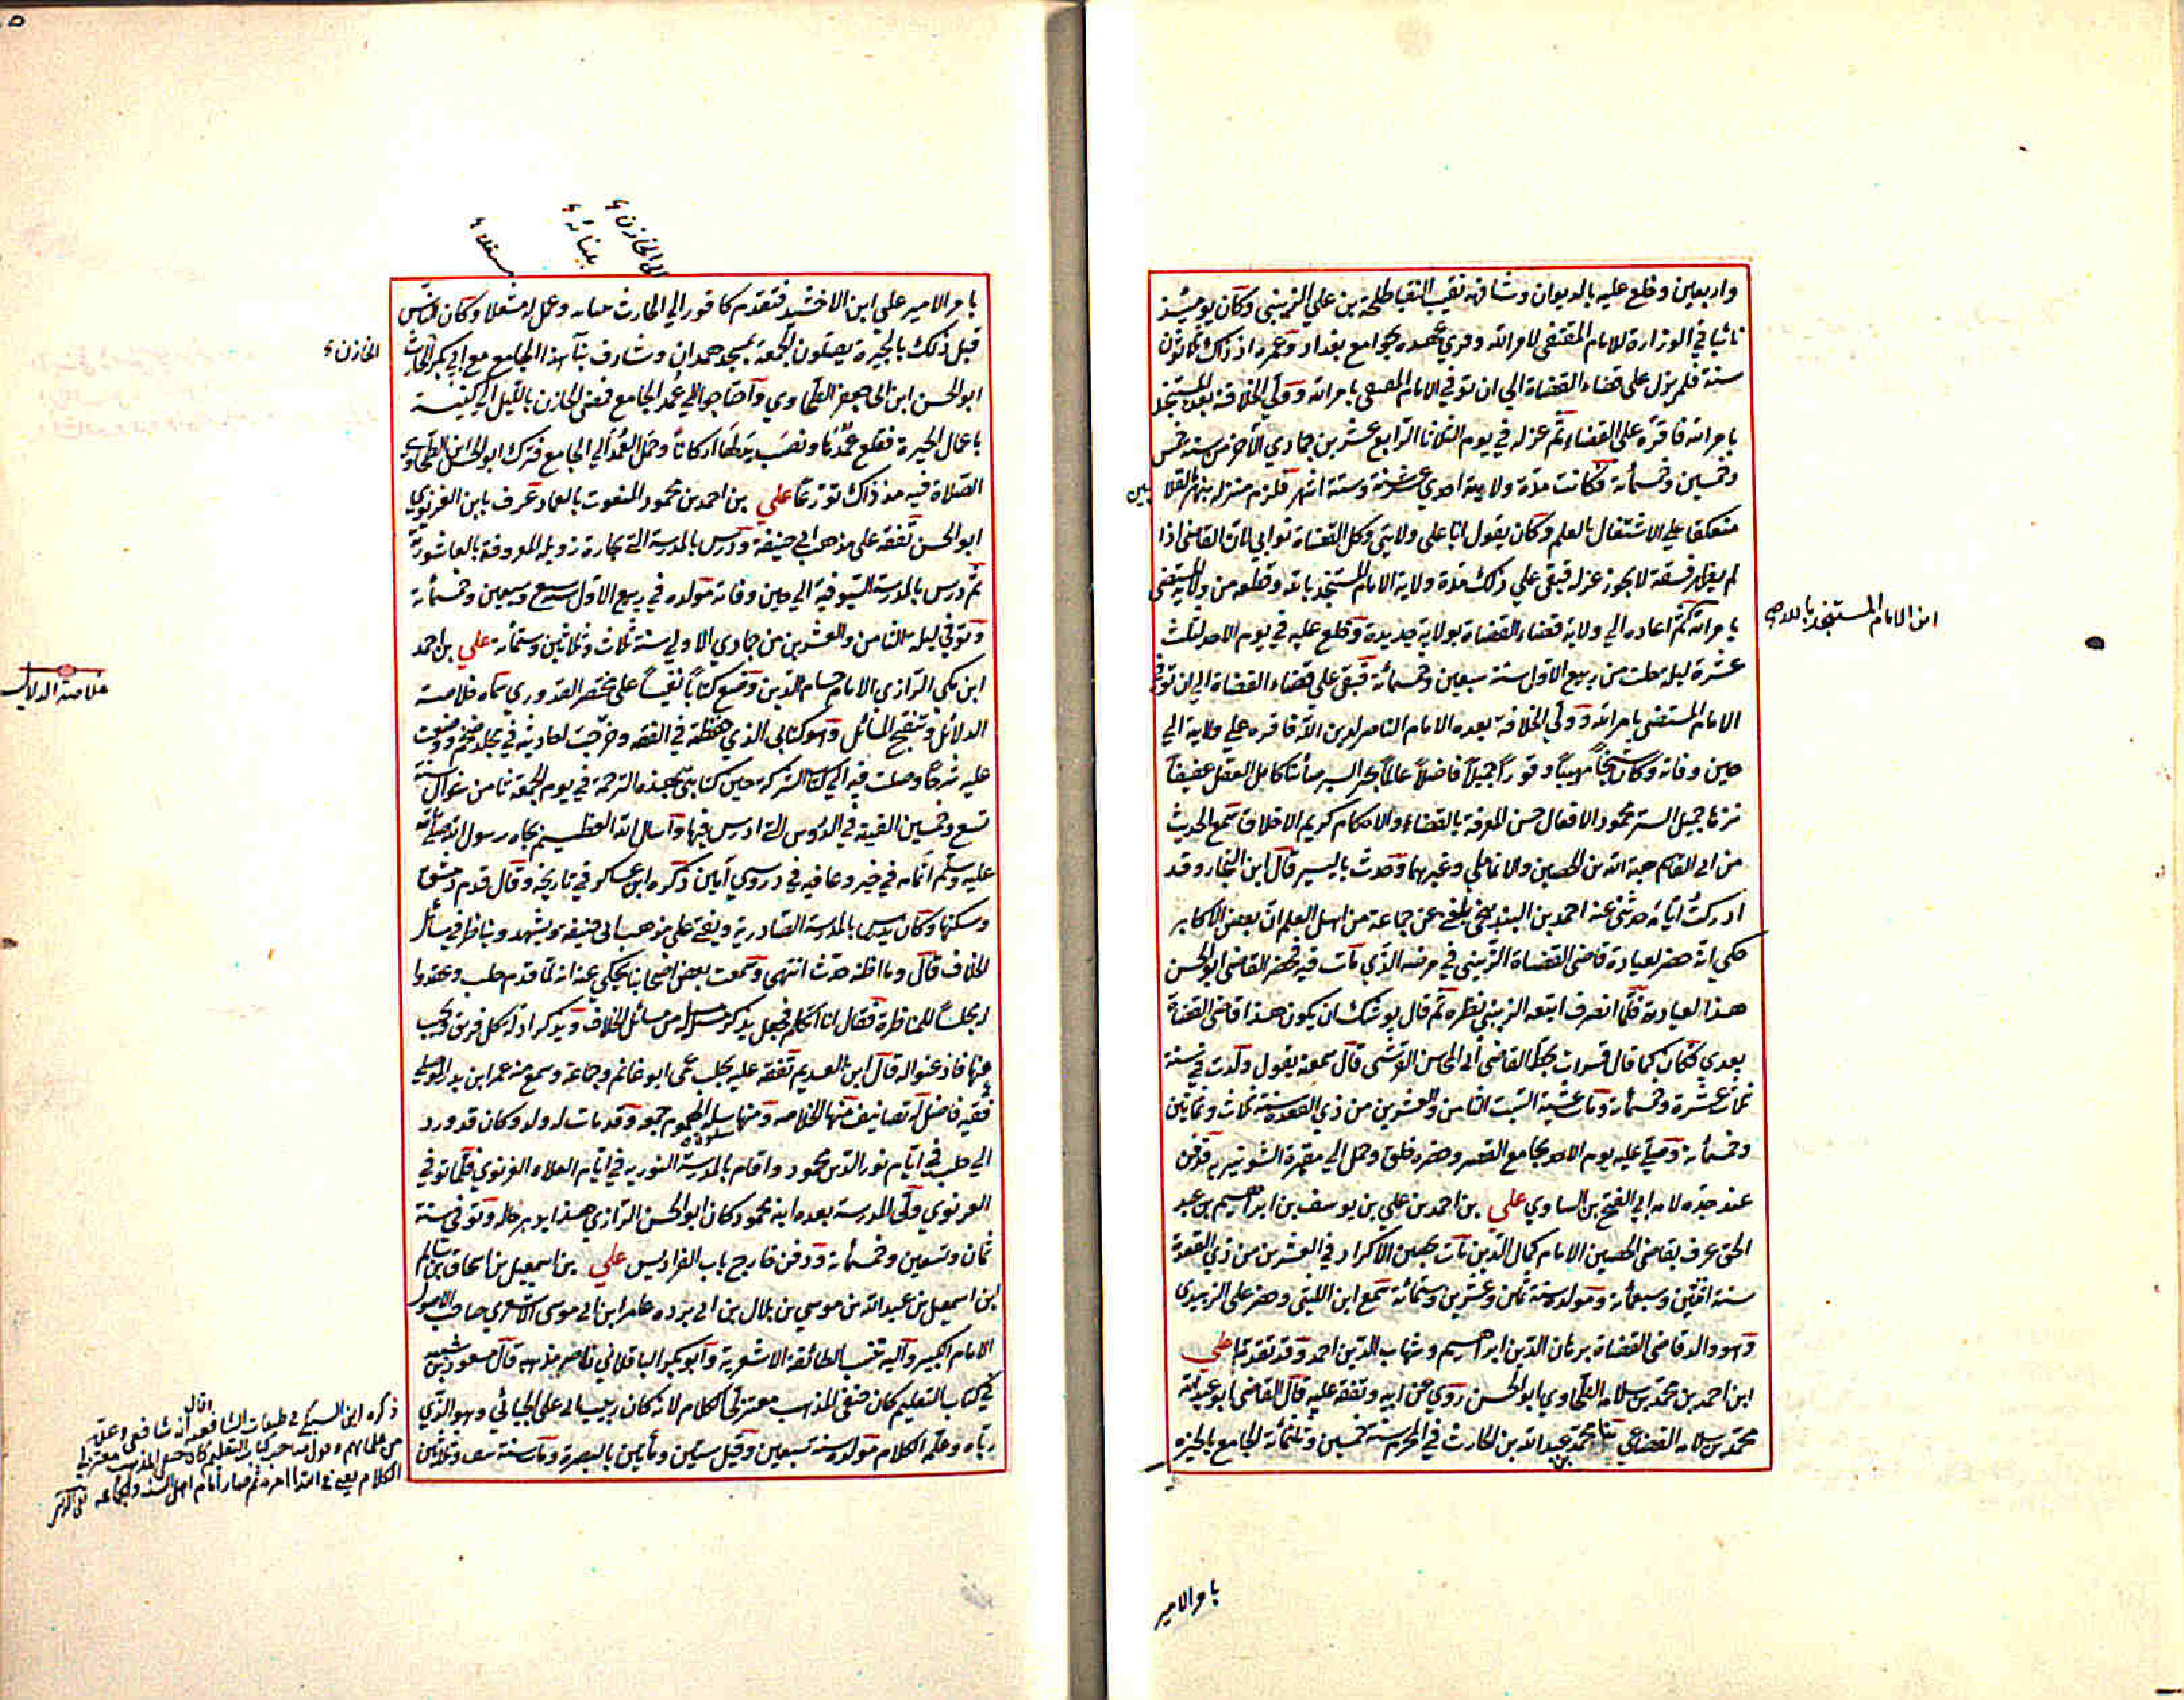 واربعين وخلع عليه بالديوان وشافهه نقيب النقبا طلحة بن علي الزينبي وكان يومئذ
نائبا في الوزارة للامام المقتفى لامر الله وقري عهده بجوامع بغداد وعمره اذ ذاك ثلاثون
سنة فلم يزل على قضاء القضاة الي ان توفي الامام المقتفى بامر الله وولي الخلافة بعده المستنجد
بامر الله فاقره على القضاء ثم عزله في يوم الثلاثا الرابع عشر من جمادي الاخر من سنة خمس
وخمسين وخمسمائة فكانت مدة ولايته احدي عشر سنة وستة اشهر فلزم منزله بنهر القلا
ئين
منعكفا علي الاشتغال بالعلم وكان يقول انا على ولايتي وكل القضاة نوابي لان القاضى اذا
لم يظهر فسقه لا يجوز عزله فبقى علي ذلك مدة ولاية الامام المستنجد بالله وقطعه من ولاية المستضى
ابن الامام المستنجد بالله صح
بامر الله ثم اعاده الي ولاية قضاء القضاة بولاية جديدة وخلع عليه في يوم الاحد لثلث
عشرة ليلة خلت من ربيع الاول سنة سبعين وخمسمائة فبقى علي قضاء القضاة الي ان توفى
الامام المستضى بامر الله وولي الخلافة بعده الامام الناصر لدين الله فاقره علي ولايته الي
حين وفاته وكان شيخا مهيبا وقورا جميلا فاضلا عالما كامل العقل عفيفا
نزها جميل الستر محمود الافعال حسن المعرفة بالقضاء والاحكام كريم الاخلاق سمع الحديث
من ابى القاسم هبة الله بن الحصين والانماطي وغيرهما وحدث باليسير قال ابن النجار وقد
ادركت ايامه حدثنى عنه احمد بن البندنيجي بلغني عن جماعة من اهل العلم ان بعض الاكابر
حكي انه حضر لعيادة قاضى القضاة الزينبى في مرضه الذي مات فيه فحضر القاضى ابو الحسن
هذا لعيادته فلما انصرف اتبعه الزينبي نظره ثم قال يوشك ان يكون هذا قاضى القضاة
بعدي فكان كما قال قرات بخط القاضى ابي المحاسن القرشى قال سمعته يقول ولدت في سنة
ثلاث عشرة وخمسمائة ومات عشية السبت الثامن والعشرين من ذي القعدة سنة ثلاث وثمانين
وخمسمائة وصلي عليه يوم الاحد بجامع القصر وحضره خلق وحمل الي مقبرة الشونيزيه فدفن
عند جده لامه ابي الفتح بن الساوي علي بن احمد بن علي بن يوسف بن ابراهيم بن عبد
الحق عرف بقاضى الحصين الامام كمال الدين مات بحصين الاكراد في العشرين من ذي القعدة
سنة اثنتين وسبعمائة ومولده سنة ثمان وعشرين وستمائة سمع ابن اللتى وحضر على الزبيدى
وهو والد قاضى القضاة برهان الدين ابراهيم وشهاب الدين احمد وقد تقدما علي
ابن احمد بن محمد بن سلامه الطحاوي ابو الحسن روي عن ابيه وتفقه عليه قال القاضى ابو عبد الله
محمد بن سلامه القضاعي بنا محمد بن عبد الله بن الحارث في المحرم سنة خمسين وثلثمائة الجامع بالجيزه
بامر الامير
الى الخازن
ببنائه
مستغلا
بامر الامير على ابن الاخشيد فتقدم كافور الي الحارث ببنائه وعمل له مستغلا وكان الناس
قبل ذلك بالجيزة يصلون الجمعة بمسجد همدان وشارف بنآ هذا الجامع مع ابي بكر الحارث
الخازن
ابو الحسن ابن ابى جعفر الطحاوي واحتاجوا الي عمد الجامع فمضى الخازن بالليل الي كنيسة
باعمال الجيزة فقلع عمدها ونصب بدلها اركانا وحمل العمد الي الجامع فترك ابو الحسن ابن الطحاوي
الصلاة فيه مذ ذاك تورعا علي بن احمد بن محمود المنعوت بالعماد عرف بابن الغزنوي
ابو الحسن تفقه على مذهب ابي حنيفة ودرس بالمدرسة التي بحارة زويله المعروفة بالعاشورية
ثم درس بالمدرسة السيوفية الي حين وفاته مولده في ربيع الاول سنة سبع وسبعين وخمسمائة
وتوفي ليلة الثامن والعشرين من جمادي الاولي سنة ثلاث وثلاثين وستمائة علي بن احمد
ابن مكي الرازي الامام حسام الدين وضع كتابا نفيسا على مختصر القدوري سماه خلاصة
خلاصة الدلائل
الدلائل وتنقيح المسائل وهو كتابى الذي حفظته في الفقه وخرجت احاديثه في مجلد ضخم ووضعت
عليه شرحا وصلت فيه الي كتاب الشركة حين كتابتى هذه الترجمة في يوم الجمعة ثامن شوال سنة
تسع وخمسين القيته في الدروس التي ادرس فيها واسال الله العظيم بجاه رسول الله صلى الله
عليه وسلم اتمامه في خير وعافيه في دروسي آمين ذكره ابن عساكر في تاريخه وقال قدم دمشق
وسكنها وكان يدرس بالمدرسة الصادرية ويفتى على مذهب ابى حنيفه ويشهد ويناظر في مسائل
الخلاف قال وما اظنه حدث انتهى وسمعت بعض اصحابنا يحكي عنه انه لما قدم حلب وعقدوا
له مجلسا للمناظرة فقال انا اتكلم فجعل يذكر مسئلة من مسائل الخلاف ويذكر ادلة كل فريق ويجيب
عنها فاذعنوا له قال ابن العديم تفقه عليه بحلب عمى ابو غانم وجماعة وسمع منه عمر ابن بدر الموصلي
فقيه فاضل له تصانيف منها الخلاصه ومنها سلوة الهموم جمعه وقد مات له ولد وكان قد ورد
الي حلب في ايام نور الدين محمود واقام بالمدرسة النوريه في ايام العلاء الغزنوي فلما توفي
الغزنوي ولى المدرسة بعده ابنه محمود كان ابو الحسن الرازي هذا يدبر حاله وتوفى سنة
ثمان وتسعين وخمسمائة ودفن خارج باب الفراديس علي بن اسمعيل بن اسحاق بن سالم
ابن اسمعيل بن عبد الله بن موسي بن بلال بن ابي برده عامر ابن ابى موسى الاشعري صاحب الاصول
الامام الكبير واليه تنسب الطائفة الاشعرية وابو بكر الباقلاني ناصر مذهبه قال مسعود بن شيبه
في كتاب التعليم كان حنفى المذهب معتزلى الكلام لانه كان ربيب ابى على الجبائي وهو الذي
رباه وعلمه الكلام مولده سنة سبعين وقيل ستين ومأتين بالبصرة ومات سنة نيف وثلاثين
ذكره ابن السبكي في طبقات الشافعيه انه شافعى
من علمائهم وقول صاحب كتاب التعليم كان حنفى المذهب معتزلي
الكلام يعني في ابتداا امره ثم صار امام اهل السنة والجماعه